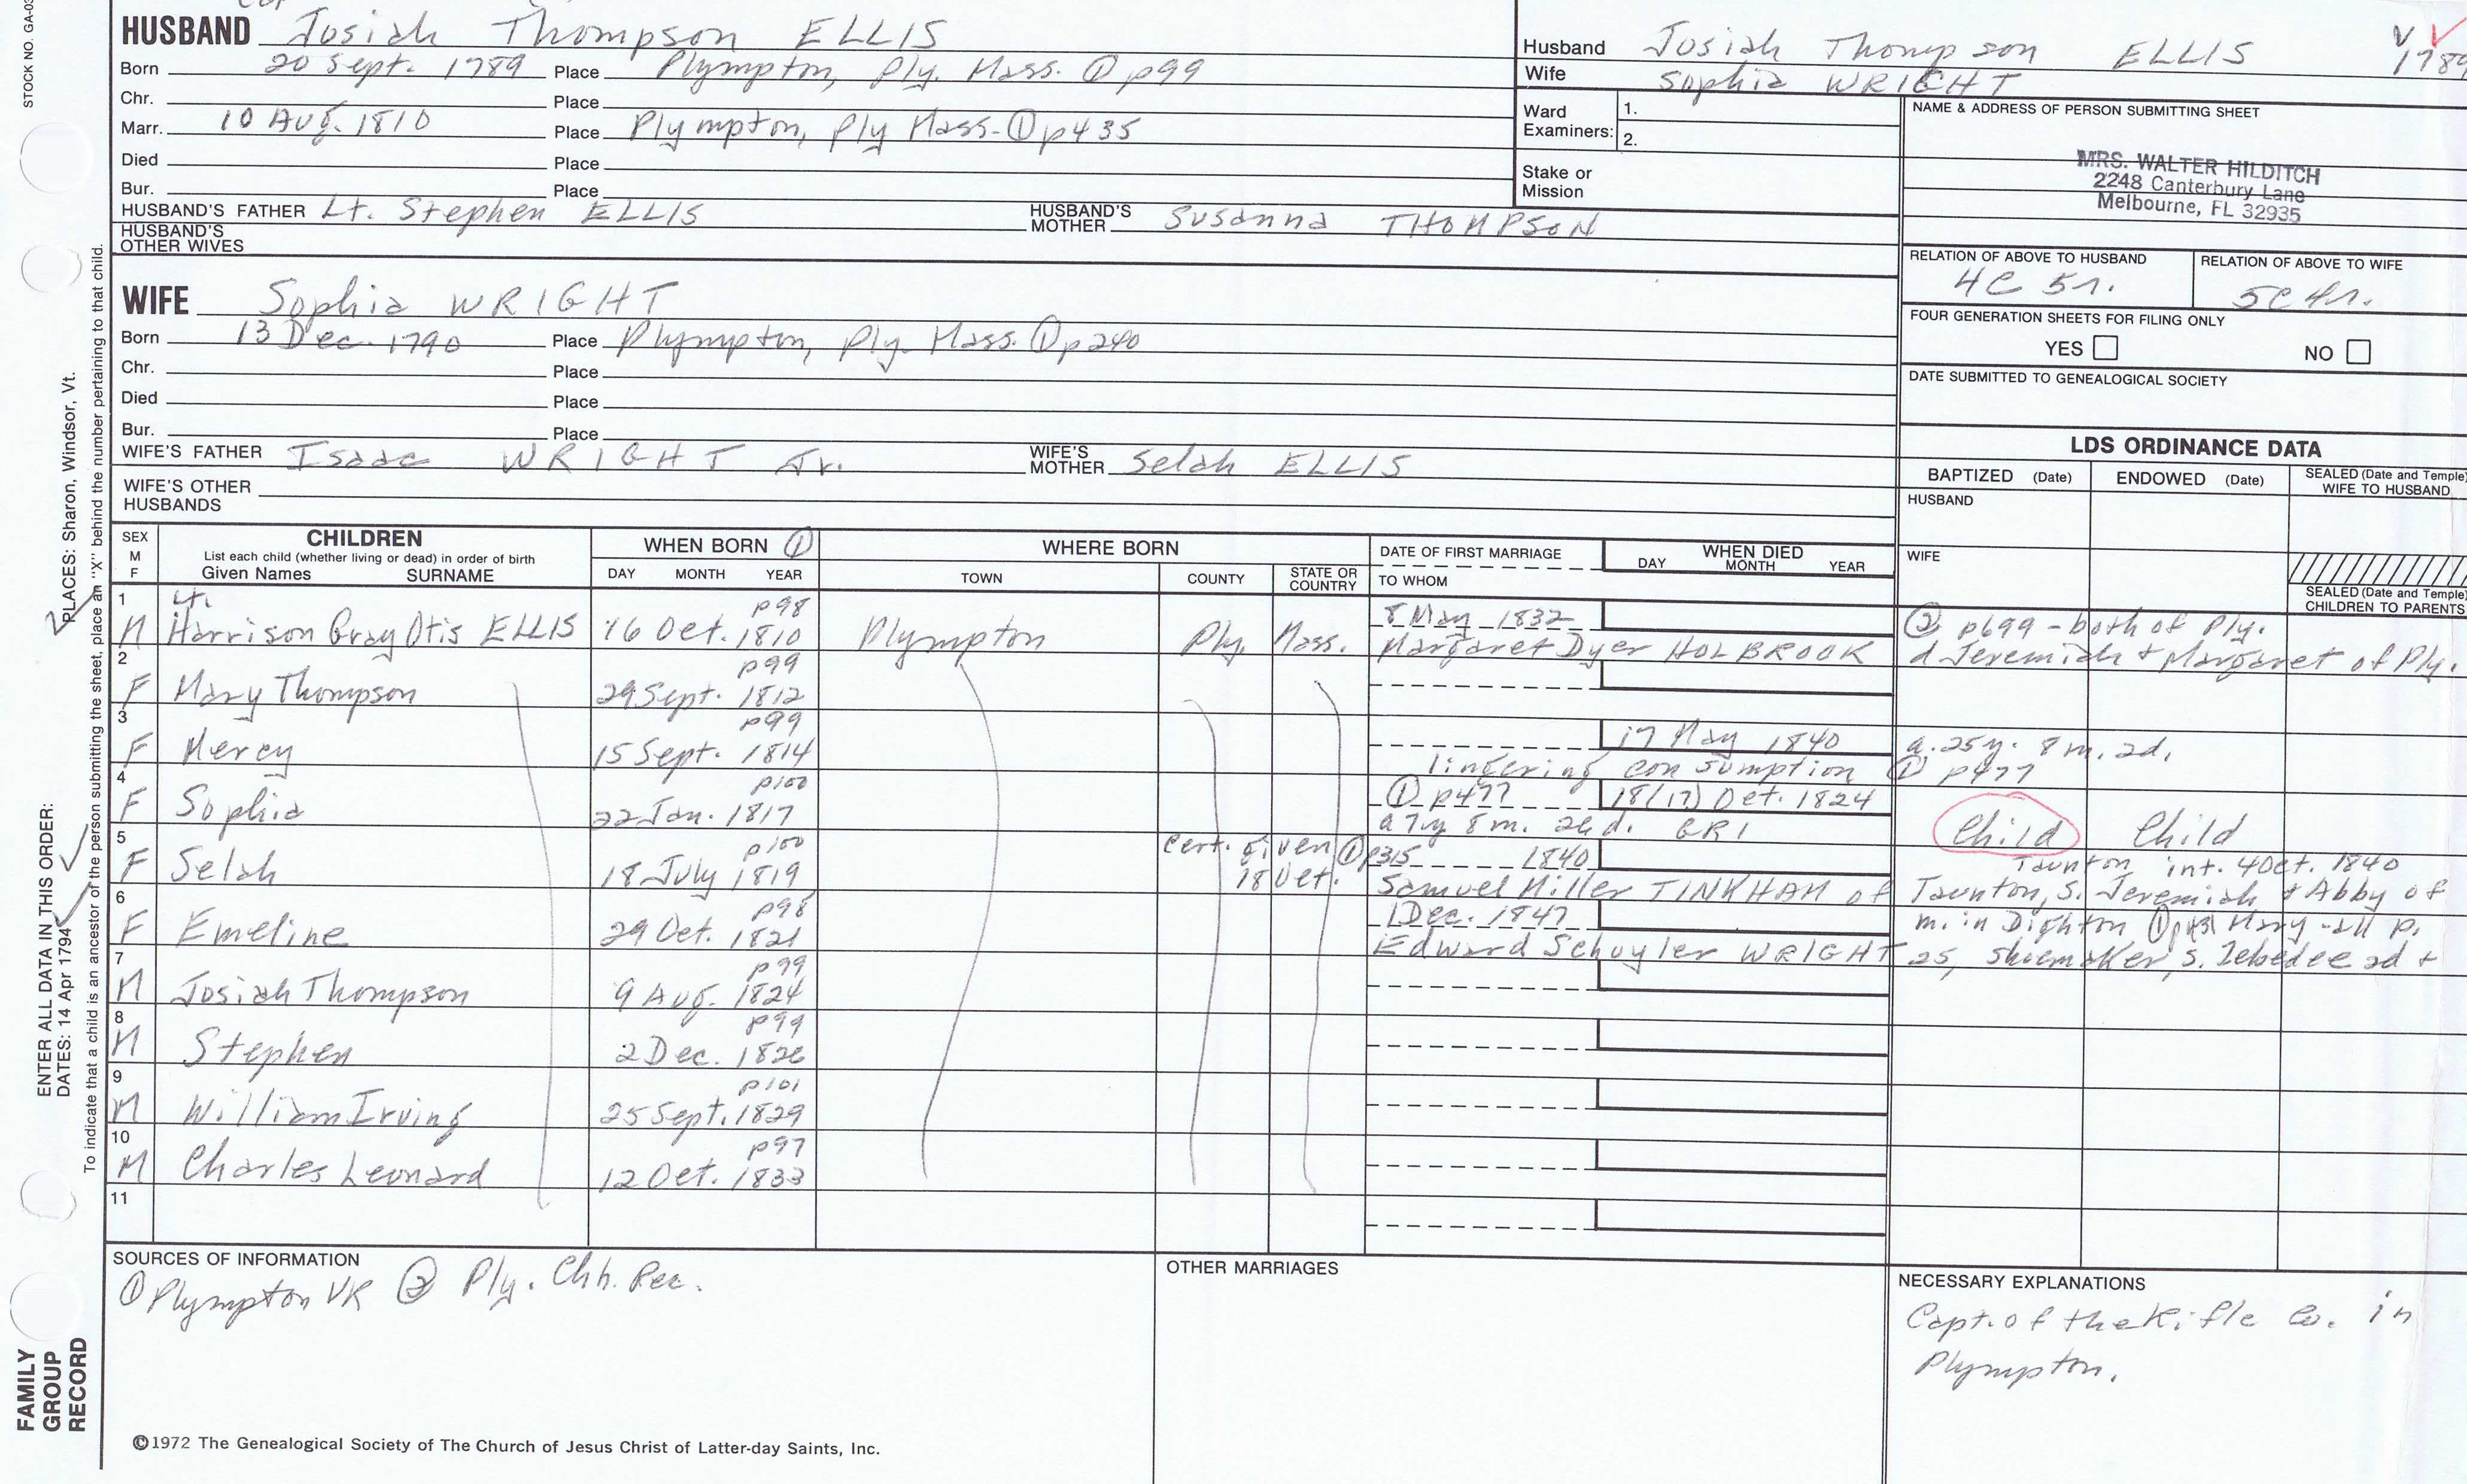 STOCK NO. GA-03
HUSBAND Josiah Thompson ELLIS
Born 20 Sept. 1789 Place Plympton, Ply. Mass. ① p99
Chr. Place
Marr. 10 Aug. 1810 Place Plympton, Ply Mass. ① p435
Died Place
Bur. Place
HUSBAND'S FATHER Lt. Stephen ELLIS HUSBAND'S MOTHER Susanna THOMPSON
HUSBAND'S OTHER WIVES
WIFE Sophia WRIGHT
Born 13 Dec. 1790 Place Plympton, Ply. Mass. ① p240
Chr. Place
Died Place
Bur. Place
WIFE'S FATHER Isaac WRIGHT Jr. WIFE'S MOTHER Selah ELLIS
WIFE'S OTHER HUSBANDS
Husband Josiah Thompson ELLIS 1789
Wife Sophia WRIGHT
Ward Examiners: 1.
2.
Stake or Mission
NAME & ADDRESS OF PERSON SUBMITTING SHEET
MRS. WALTER HILDITCH
2248 Canterbury Lane
Melbourne, FL 32935
RELATION OF ABOVE TO HUSBAND RELATION OF ABOVE TO WIFE
4C 5r. 5C 4r.
FOUR GENERATION SHEETS FOR FILING ONLY
YES NO
DATE SUBMITTED TO GENEALOGICAL SOCIETY
LDS ORDINANCE DATA
BAPTIZED (Date) ENDOWED (Date) SEALED (Date and Temple) WIFE TO HUSBAND
HUSBAND
WIFE
SEALED (Date and Temple) CHILDREN TO PARENTS
SEX M F CHILDREN WHEN BORN ① WHERE BORN DATE OF FIRST MARRIAGE WHEN DIED
List each child (whether living or dead) in order of birth
Given Names SURNAME DAY MONTH YEAR TOWN COUNTY STATE OR COUNTRY TO WHOM DAY MONTH YEAR
1 Lt. p98 8 May 1832 ② p699 - both of Ply.
M Harrison Gray Otis ELLIS 16 Oct. 1810 Plympton Ply. Mass. Margaret Dyer HOLBROOK d Jeremiah & Margaret of Ply.
2 p99
F Mary Thompson 29 Sept. 1812
3 p99 17 May 1840 a. 25y. 8m. 2d.
F Mercy 15 Sept. 1814 lingering consumption ① p477
4 p100 ① p477 18/(17) Oct. 1824
F Sophia 22 Jan. 1817 a 7y 8m. 26d. GR1 Child Child
5 p100 Cert. given ① p315 1840 Taunton int. 4 Oct. 1840
F Selah 18 July 1819 18 Oct. Samuel Miller TINKHAM of Taunton, s. Jeremiah & Abby of
6 p98 1 Dec. 1847 m. in Dighton ① Mary - all P.
F Emeline 29 Oct. 1821 Edward Schuyler WRIGHT 25, shoemaker, s. Zebedee 2d +
7 p99
M Josiah Thompson 9 Aug. 1824
8 p99
M Stephen 2 Dec. 1826
9 p101
M William Irving 25 Sept. 1829
10 p97
M Charles Leonard 12 Oct. 1833
11
SOURCES OF INFORMATION
① Plympton VR ② Ply. Chh. Rec.
OTHER MARRIAGES
NECESSARY EXPLANATIONS
Capt. of the Rifle Co. in
Plympton.
©1972 The Genealogical Society of The Church of Jesus Christ of Latter-day Saints, Inc.
ENTER ALL DATA IN THIS ORDER:
PLACES: Sharon, Windsor, Vt.
DATES: 14 Apr 1794
To indicate that a child is an ancestor of the person submitting the sheet, place an "X" behind the number pertaining to that child.
FAMILY
GROUP
RECORD